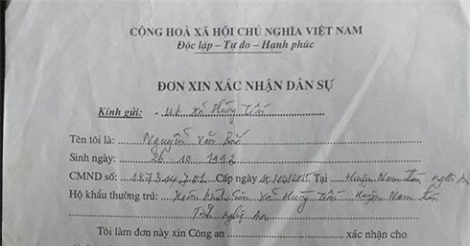 CỘNG HOÀ XÃ HỘI CHỦ NGHĨA VIỆT NAM
Độc lập – Tự do – Hạnh phúc
ĐƠN XIN XÁC NHẬN DÂN SỰ
Kính gửi: Ub xã Hùng Tiến
Tên tôi là: Nguyễn Văn
Sinh ngày: 26 10 1992
CMND số: Cấp ngày Tại Huyện Nam Đàn
Hộ khẩu thường trú: Xóm Xã Hùng Tiến Huyện Nam Đàn
Tỉnh Nghệ An
Tôi làm đơn này xin Công an xác nhận cho